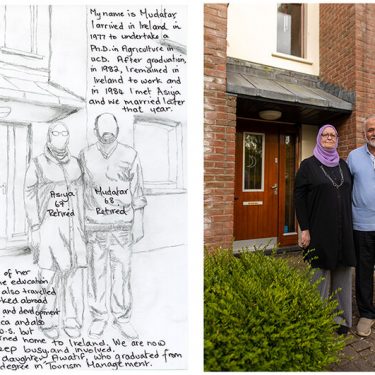 My name is Mudafar
I arrived in Ireland in
1977 to undertake a
Ph.D. in Agriculture in
UCD. After graduation,
in 1982, I remained in
Ireland to work and
in 1984 I met Asiya
and we married later
that year.
Asiya
64
Retired
Mudafar
68
Retired
of her
education
also travelled
abroad
and development
and also
U.S. but
home to Ireland. We are now
busy and involved.
daughter, Awatif, who graduated from
degree in Tourism Management.